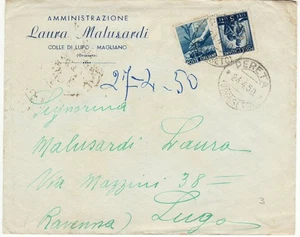 AMMINISTRAZIONE
Laura Malusardi
COLLE DI LUPO - MAGLIANO
27-2-50
PERETA
Signorina
Malusardi Laura
Via Mazzini 38=
(Ravenna) Lugo
3